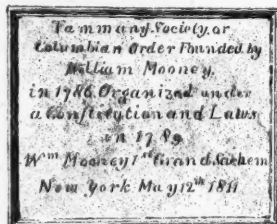 Tammany Society, or
Columbian Order Founded by
William Mooney,
in 1786. Organized under
a Constitution and Laws
in 1789
Wm Mooney 1st Grand Sachem
New York May 12th 1811